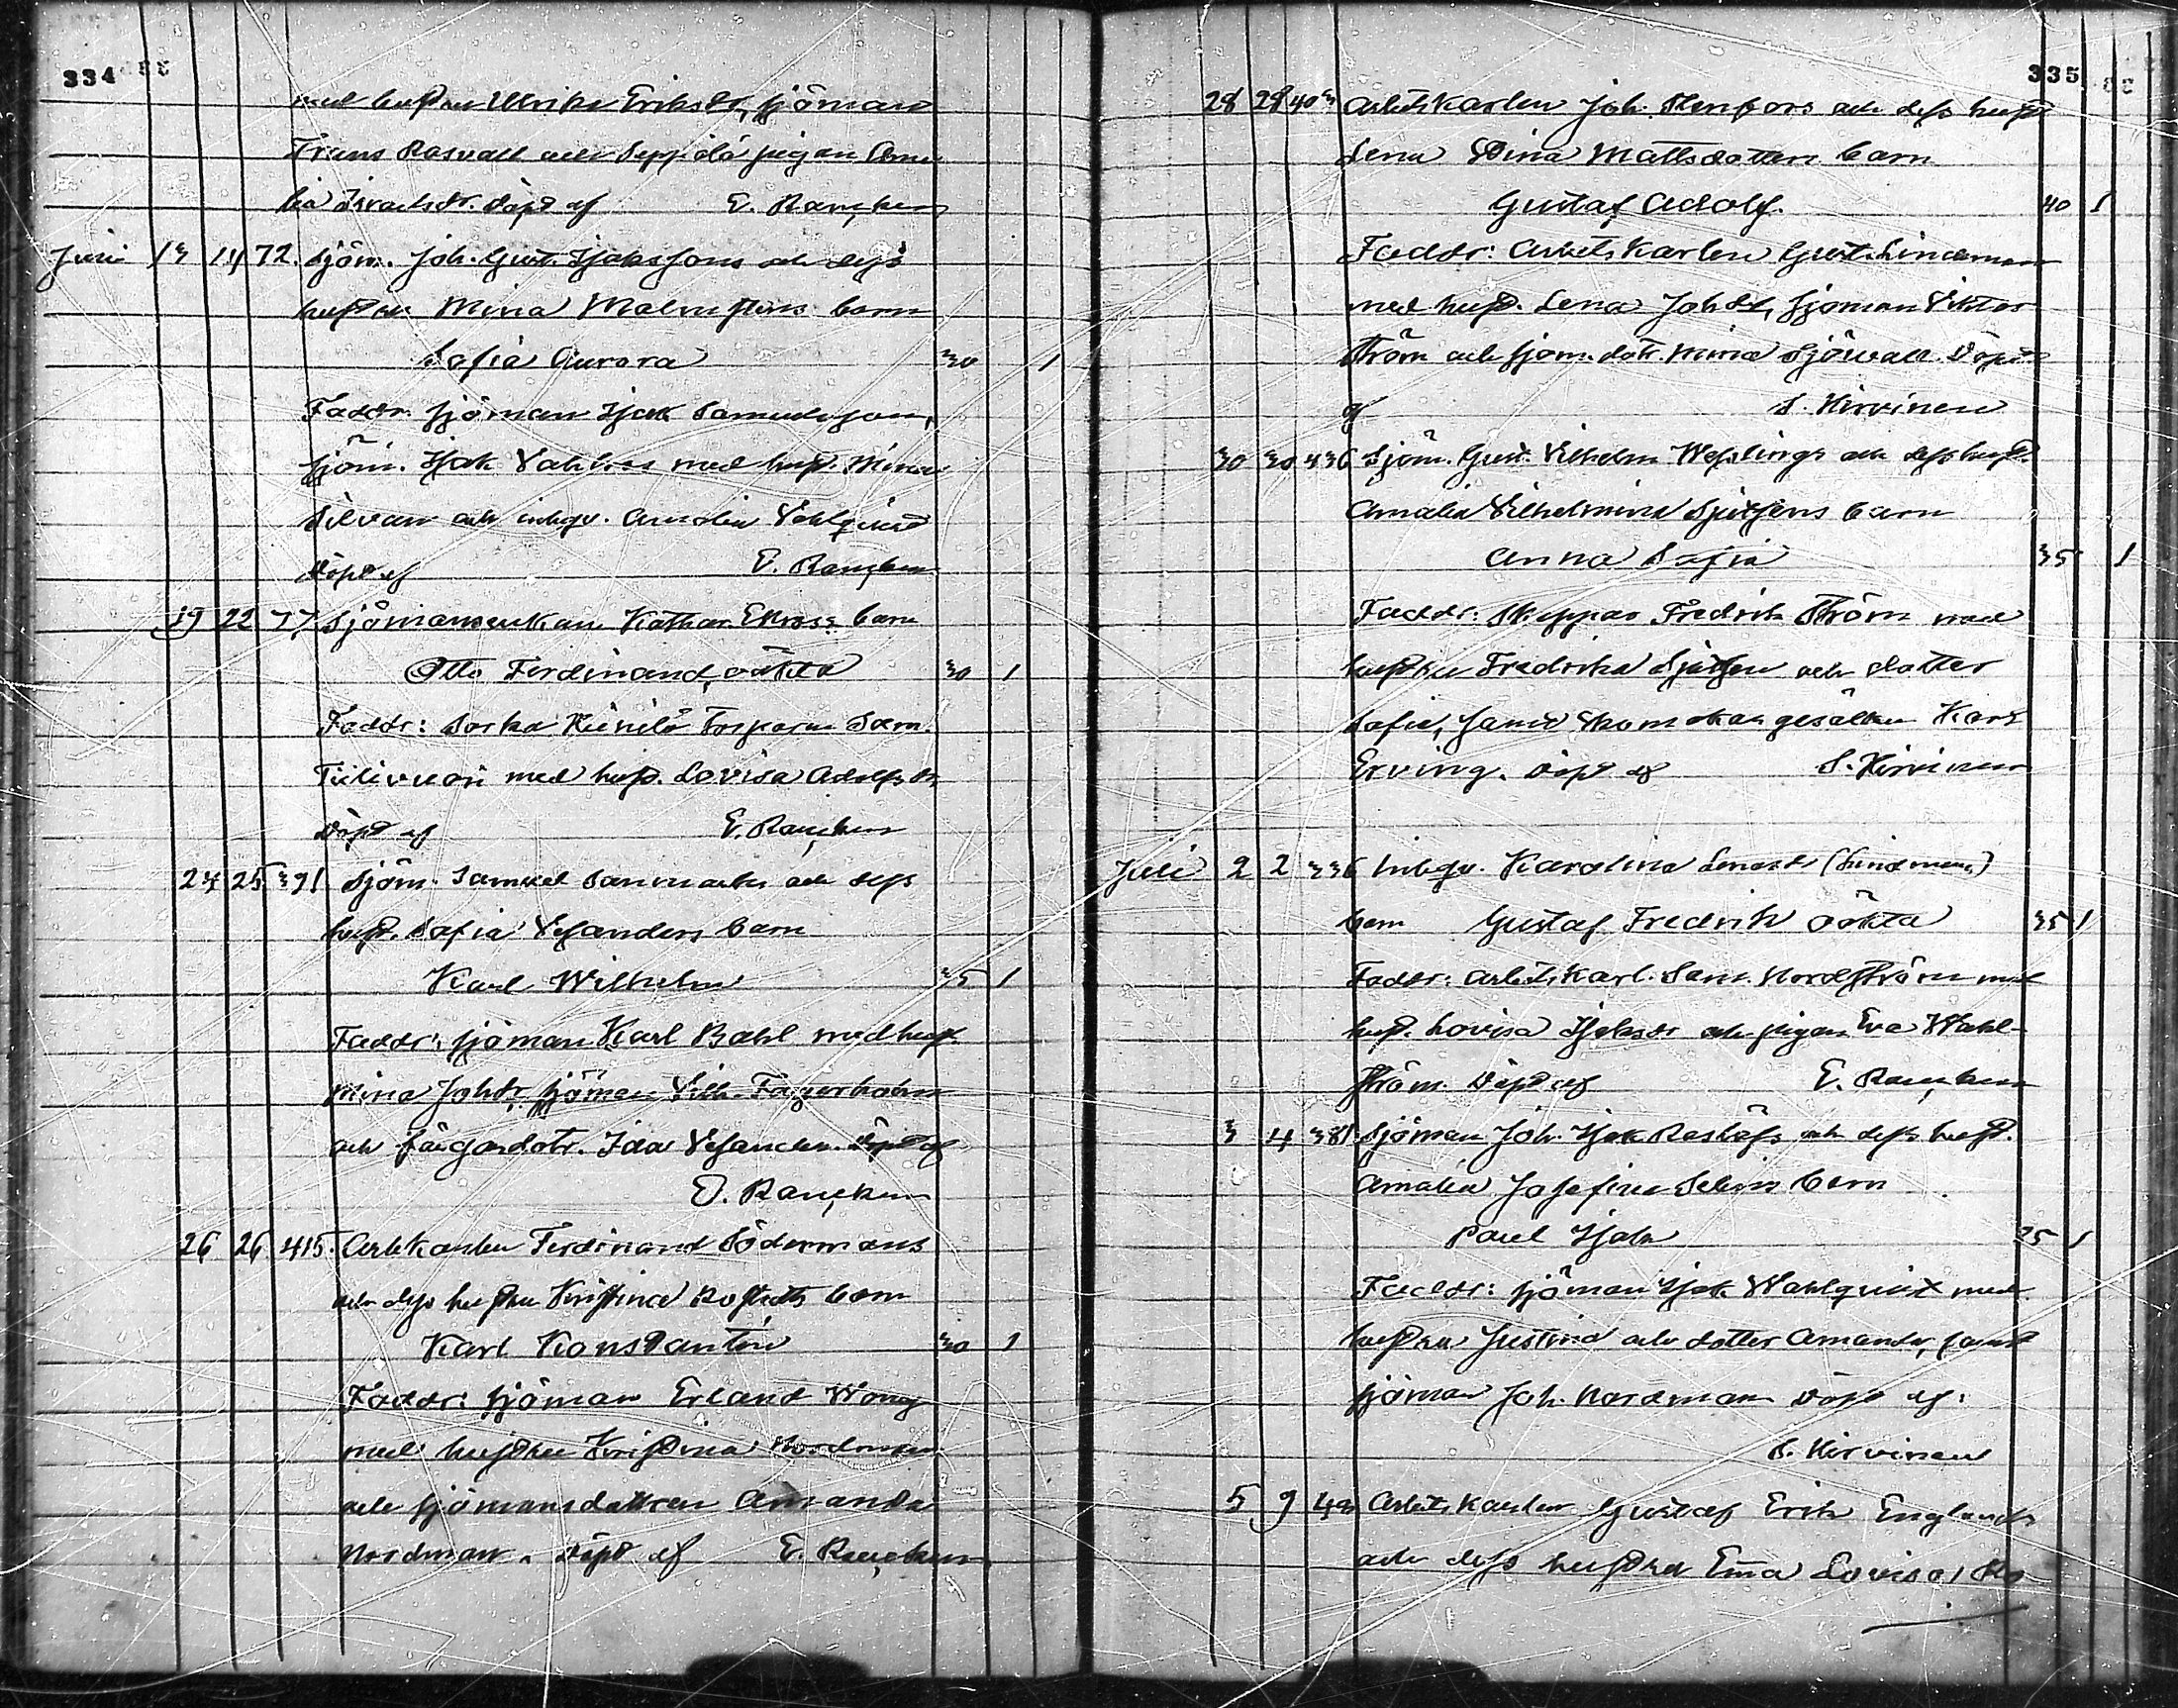 334
med hustrun Ulrika Eriksdr, sjöman
Frans Rosvall och Sepp. då pigan Ama
lia Israelsdr. Döpt af E. Rancken
Juni 13 14 72. Sjöm. Joh. Gust. Isakssons och dess
hustru Mina Malmstens barn
Sofia Aurora 30 1
Faddr. sjöman Isak Samuelsson,
sjöm. Isak med hust. Mina
Silvan och inhysv. Amalia Vahlqvist
Döpt af E. Rancken
19 22 77 Sjömansenkan Kathar. Ekroos barn
Otto Ferdinand, oäkta 30 1
Faddr: Torparn Sam.
Tiilivuori med hust. Lovisa Adolfsdr
Döpt af E. Rancken
24 25 391 Sjöm. Samuel Sanmarks och dess
hustr. Sofia Vesanders barn
Karl Wilhelm 35 1
Faddr: sjöman Karl Bahl med hust
Mina Johdr. sjöman Vilh. Fagerholm
och färgardotr. Ida Vesander. Döpt af
E. Rancken
26 26 415. Arb.karlen Ferdinand Södermans
och dess hustru Kristina barn
Karl Konstantin 30 1
Faddr: sjöman Erland Wong
med hustru Kristina Nordman
och sjömansdottren Amanda
Nordman. Döpt af E. Rancken
335
28 28 403 Arbetskarlen Joh. Stenfors och dess hust
Lena Dina Mattsdotters barn
Gustaf Adolf. 40 1
Faddr: Arbetskarlen Gust. Lindeman
med hust. Lena Johdr, sjöman Viktor
Ström och sjöm. dotr. Mina Sjövall. Döpt
af S. Hirvinen
30 30 436 Sjöm. Gust. Vilhelm Wesslings och dess hust.
Amalia Vilhelmina barn
Anna Sofia 35 1
Faddr: Skeppar Fredrik Ström med
hustru Fredrika och dotter
Sofia, samt skomakaregesällen Karl
Erving. Döpt af S. Hirvinen
Juli 2 2 336 Inhysv. Karolina (Lindman)
barn Gustaf Fredrik oäkta 35 1
Faddr: Arbetskarl. Sam. Nordström med
hust. Lovisa Isaksdr och pigan Eva Wahl-
ström. Döpt af E. Rancken
3 4 381. Sjöman Joh. Isak och dess hust.
Amalia Josefina Selins barn
Paul Isak 25 1
Faddr: sjöman Isak Wahlqvist med
hustru Justina och dotter Amanda, samt
sjöman Joh. Nordman Döpt af:
S. Hirvinen
5 9 Arbetskarlen Gustaf Erik Englunds
och dess hustru Ema Lovisa